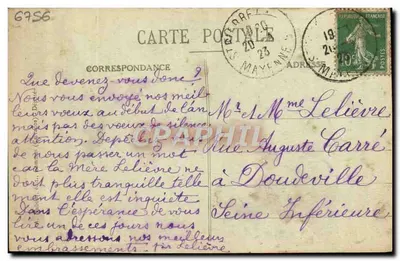 6756
CARTE POSTALE
CORRESPONDANCE
ADRESSE
20
23
MAYENNE
Que devenez-vous donc ?
Nous vous envoyé nos meil
leurs vœux au début de l'an
mais pas des vœux de silence
attention. Dépêchez
de nous passer un mot
car la Mère Lelièvre ne
dort plus tranquille telle
ment elle est inquiète
Dans l'espérance de vous
lire un de ces jours nous
vous adressons nos meilleurs
embrassements. Lelièvre
Mr & Mme Lelièvre
rue Auguste Carré
à Doudeville
Seine Inférieure
CPAPHIL
10